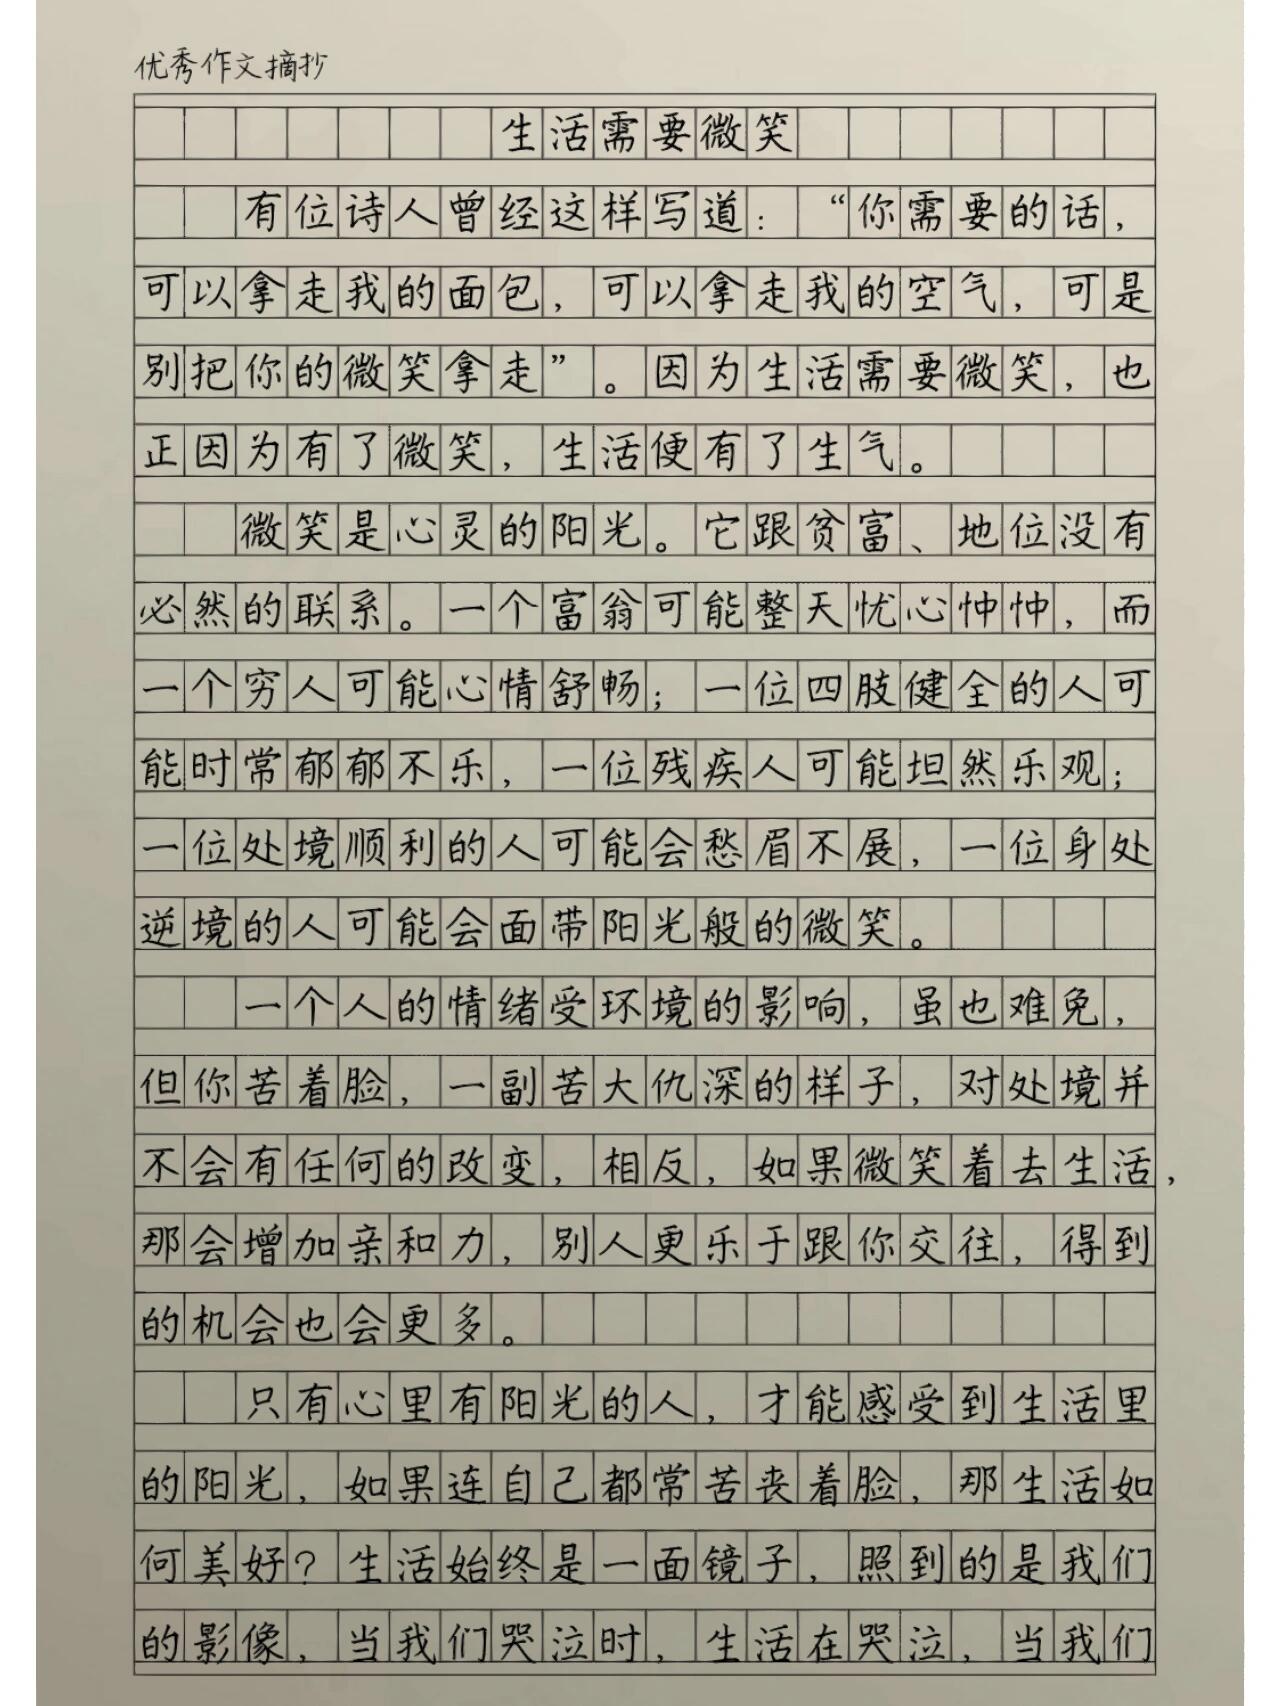 优秀作文摘抄
生活需要微笑
有位诗人曾经这样写道：“你需要的话，
可以拿走我的面包，可以拿走我的空气，可是
别把你的微笑拿走”。因为生活需要微笑，也
正因为有了微笑，生活便有了生气。
微笑是心灵的阳光。它跟贫富、地位没有
必然的联系。一个富翁可能整天忧心忡忡，而
一个穷人可能心情舒畅；一位四肢健全的人可
能时常郁郁不乐，一位残疾人可能坦然乐观；
一位处境顺利的人可能会愁眉不展，一位身处
逆境的人可能会面带阳光般的微笑。
一个人的情绪受环境的影响，虽也难免，
但你苦着脸，一副苦大仇深的样子，对处境并
不会有任何的改变，相反，如果微笑着去生活，
那会增加亲和力，别人更乐于跟你交往，得到
的机会也会更多。
只有心里有阳光的人，才能感受到生活里
的阳光，如果连自己都常苦丧着脸，那生活如
何美好？生活始终是一面镜子，照到的是我们
的影像，当我们哭泣时，生活在哭泣，当我们